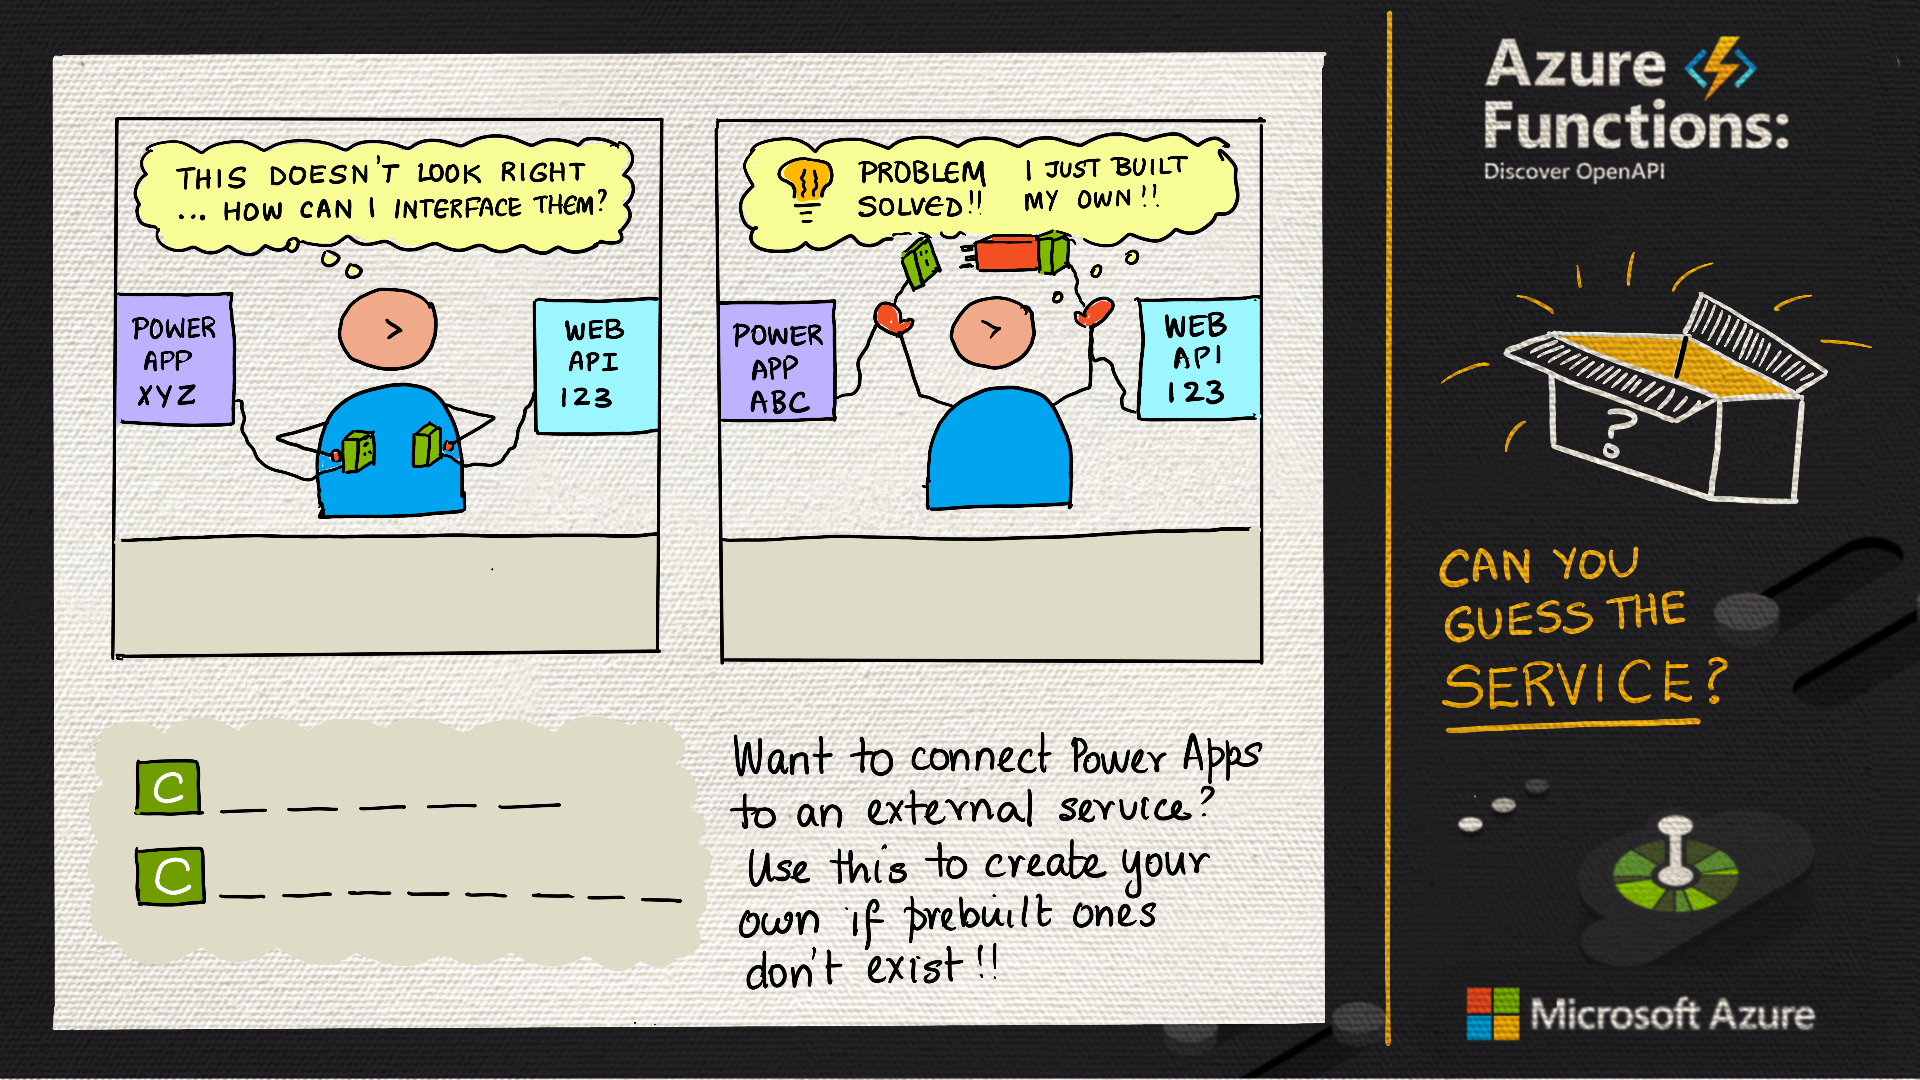 THIS DOESN'T LOOK RIGHT
... HOW CAN I INTERFACE THEM?
POWER
APP
XYZ
WEB
API
123
PROBLEM
SOLVED!!
I JUST BUILT
MY OWN!!
POWER
APP
ABC
WEB
API
123
C _ _ _ _ _
C _ _ _ _ _ _ _ _
Want to connect Power Apps
to an external service?
Use this to create your
own if prebuilt ones
don't exist!!
Azure
Functions:
Discover OpenAPI
?
CAN YOU
GUESS THE
SERVICE?
Microsoft Azure